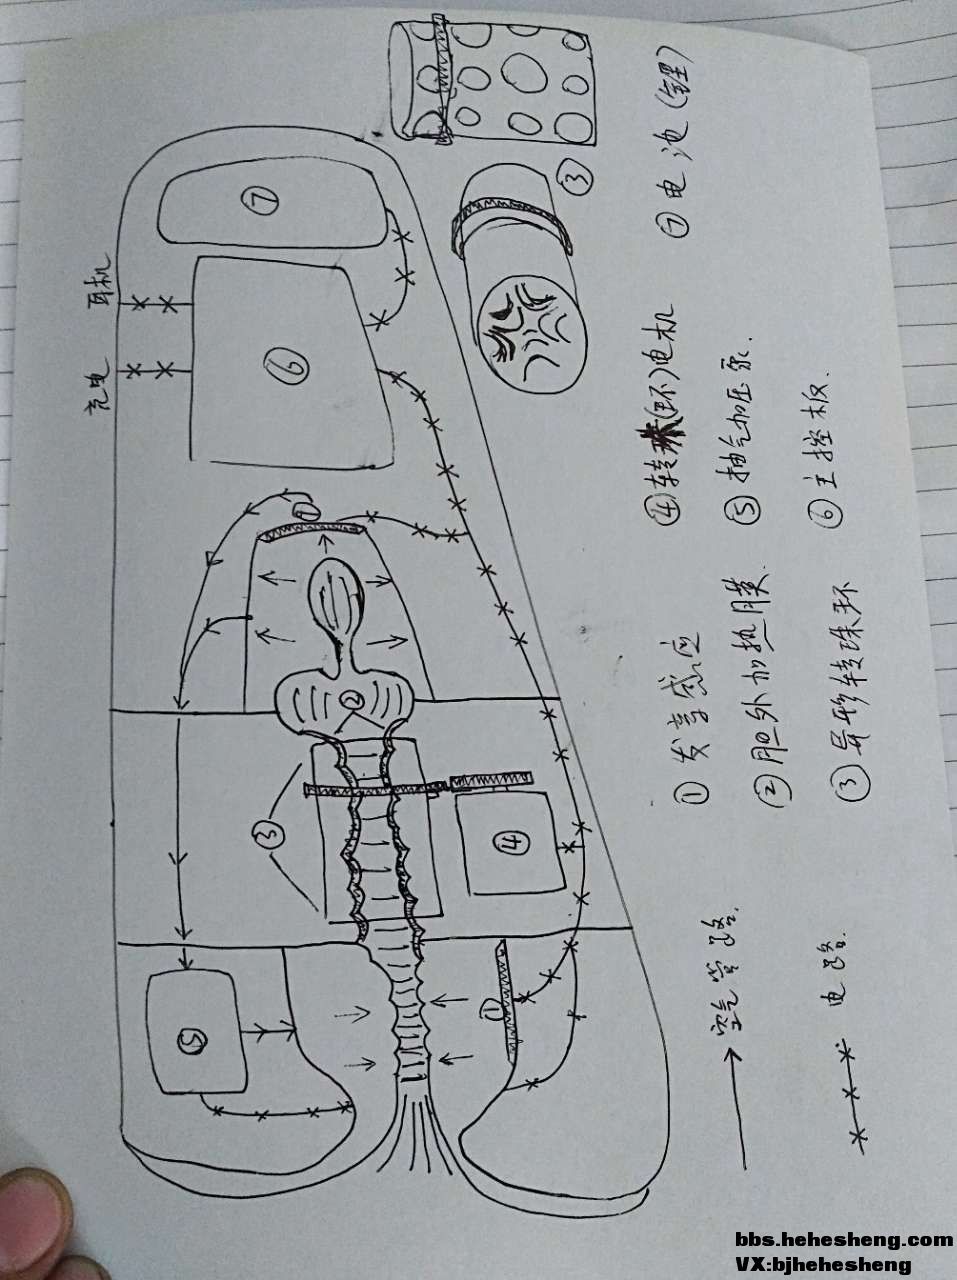 耳机
充电
⑦
⑥
①
②
③
④
⑤
①
③
① 发享感应
② 胆外加热膜.
③ 异形转珠环
④ 转珠(环)电机
⑤ 抽气加压泵.
⑥ 主控板.
⑦ 电池(锂)
空气管路.
电路.
bbs.hehesheng.com
VX:bjhehesheng